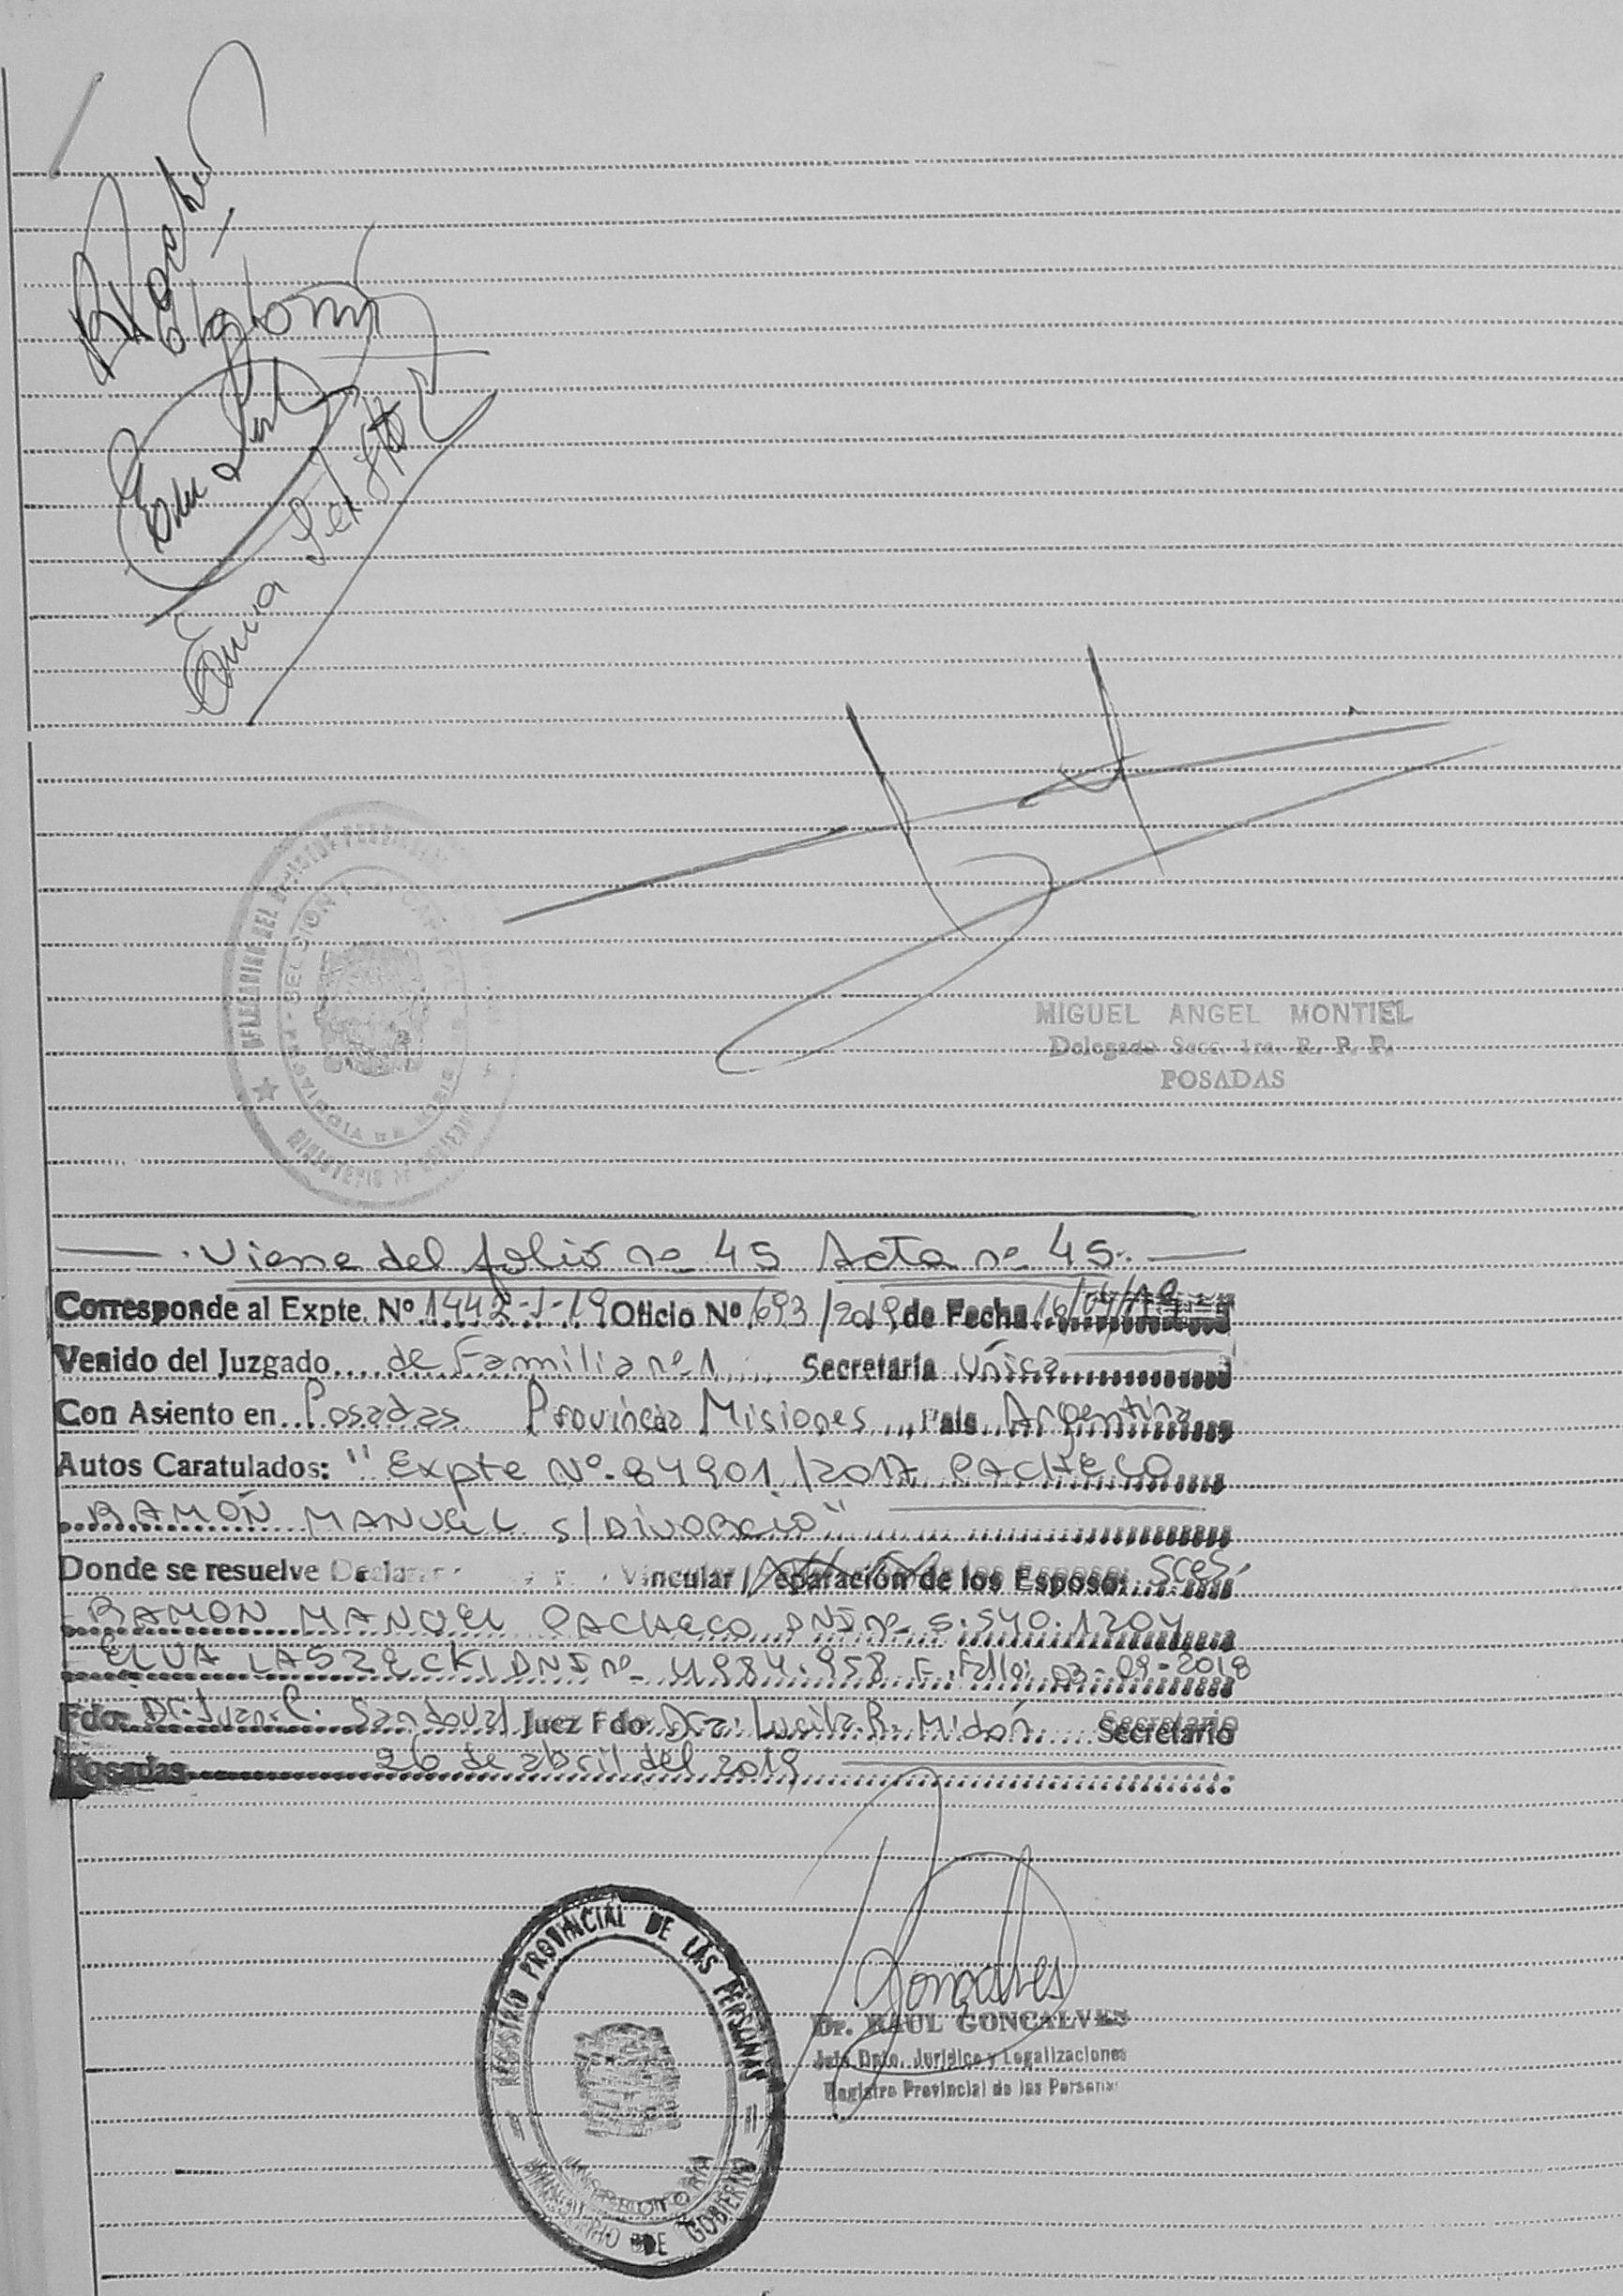 MIGUEL ANGEL MONTIEL
Delegado Secc. 1ra. R. P. P.
POSADAS
Viene del folio nº 45 Acta nº 45.
Corresponde al Expte. Nº 1442-J-19 Oficio Nº 693/2019 de Fecha 16/04/19
Venido del Juzgado de Familia nº 1 Secretaría Única
Con Asiento en Posadas Provincia Misiones País Argentina
Autos Caratulados: "Expte Nº 84901/2017 PACHECO
RAMÓN MANUEL s/DIVORCIO"
Donde se resuelve Declarar Vincular / Separación de los Esposos Sres.
RAMON MANUEL PACHECO DNI nº 5.540.120 y
ELVA LASZECKI DNI nº 4984.958 F. Fallo: 03-09-2018
Fdo. Dr. Juan C. Sandoval Juez Fdo Dra. Lucila R. Midón Secretario
Posadas 26 de abril del 2019
REGISTRO PROVINCIAL DE LAS PERSONAS
MINISTERIO DE GOBIERNO
Dr. RAUL GONCALVES
Jefe Dpto. Jurídico y Legalizaciones
Registro Provincial de las Personas